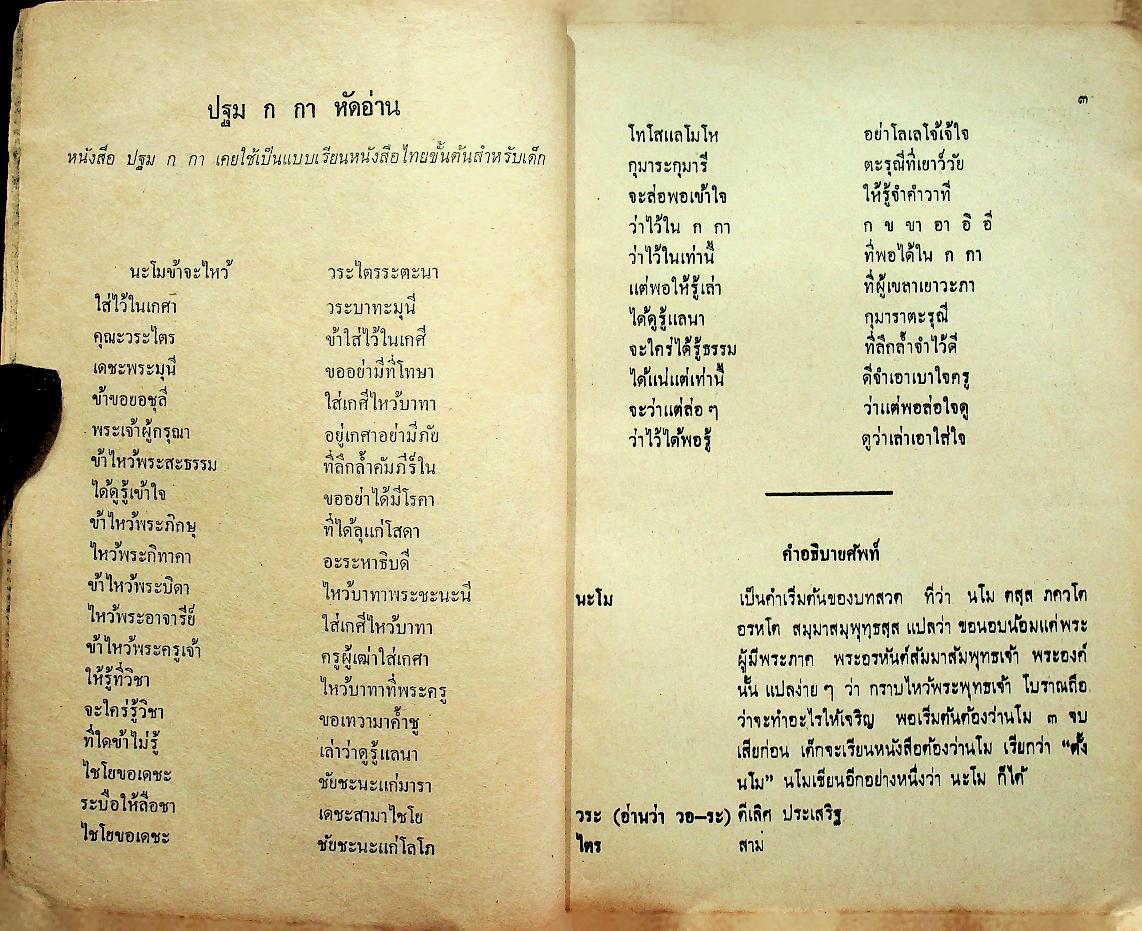 ปฐม ก กา หัดอ่าน
หนังสือ ปฐม ก กา เคยใช้เป็นแบบเรียนหนังสือไทยขั้นต้นสำหรับเด็ก
นะโมข้าจะไหว้ วระไตรระตะนา
ใส่ไว้ในเกศา วระบาทะมุนี
คุณะวระไตร ข้าใส่ไว้ในเกศี
เดชะพระมุนี ขออย่ามีที่โทษา
ข้าขอยอชุลี ใส่เกศีไหว้บาทา
พระเจ้าผู้กรุณา อยู่เกศาอย่ามีภัย
ข้าไหว้พระสะธรรม ที่ลึกล้ำคัมภีร์ใน
ได้ดูรู้เข้าใจ ขออย่าได้มีโรคา
ข้าไหว้พระภิกษุ ที่ได้ลุแก่โสดา
ไหว้พระกิทาคา อะระหาธิบดี
ข้าไหว้พระบิดา ไหว้บาทาพระชะนะนี
ไหว้พระอาจารีย์ ใส่เกศีไหว้บาทา
ข้าไหว้พระครูเจ้า ครูผู้เฒ่าใส่เกศา
ให้รู้ที่วิชา ไหว้บาทาที่พระครู
จะใคร่รู้วิชา ขอเทวามาค้ำชู
ที่ใดข้าไม่รู้ เล่าว่าดูรู้แลนา
ไชโยขอเดชะ ชัยชะนะแก่มารา
ระบือให้ลือชา เดชะสามาไชโย
ไชโยขอเดชะ ชัยชะนะแก่โลโภ
๓
โทโสแลโมโห อย่าโลเลโจ้เจ้ใจ
กุมาระกุมารี ตะรุณีที่เยาว์วัย
จะล่อพอเข้าใจ ให้รู้จำคำวาที
ว่าไว้ใน ก กา ก ข ขา อา อิ อี
ว่าไว้ในเท่านี้ ที่พอได้ใน ก กา
แต่พอให้รู้เล่า ที่ผู้เขลาเยาวะภา
ได้ดูรู้แลนา กุมาราตะรุณี
จะใคร่ได้รู้ธรรม ที่ลึกล้ำจำไว้ดี
ได้แน่แต่เท่านี้ ดีจำเอาเบาใจครู
จะว่าแต่ล่อ ๆ ว่าแต่พอล่อใจดู
ว่าไว้ได้พอรู้ ดูว่าเล่าเอาใส่ใจ
คำอธิบายศัพท์
นะโม เป็นคำเริ่มต้นของบทสวด ที่ว่า นโม ตสฺส ภควโต
อรหโต สมฺมาสมฺพุทฺธสฺส แปลว่า ขอนอบน้อมแด่พระ
ผู้มีพระภาค พระอรหันต์สัมมาสัมพุทธเจ้า พระองค์
นั้น แปลง่าย ๆ ว่า กราบไหว้พระพุทธเจ้า โบราณถือ
ว่าจะทำอะไรให้เจริญ พอเริ่มต้นต้องว่านโม ๓ จบ
เสียก่อน เด็กจะเรียนหนังสือต้องว่านโม เรียกว่า “ตั้ง
นโม” นโมเขียนอีกอย่างหนึ่งว่า นะโม ก็ได้
วระ (อ่านว่า วอ–ระ) ดีเลิศ ประเสริฐ
ไตร สาม